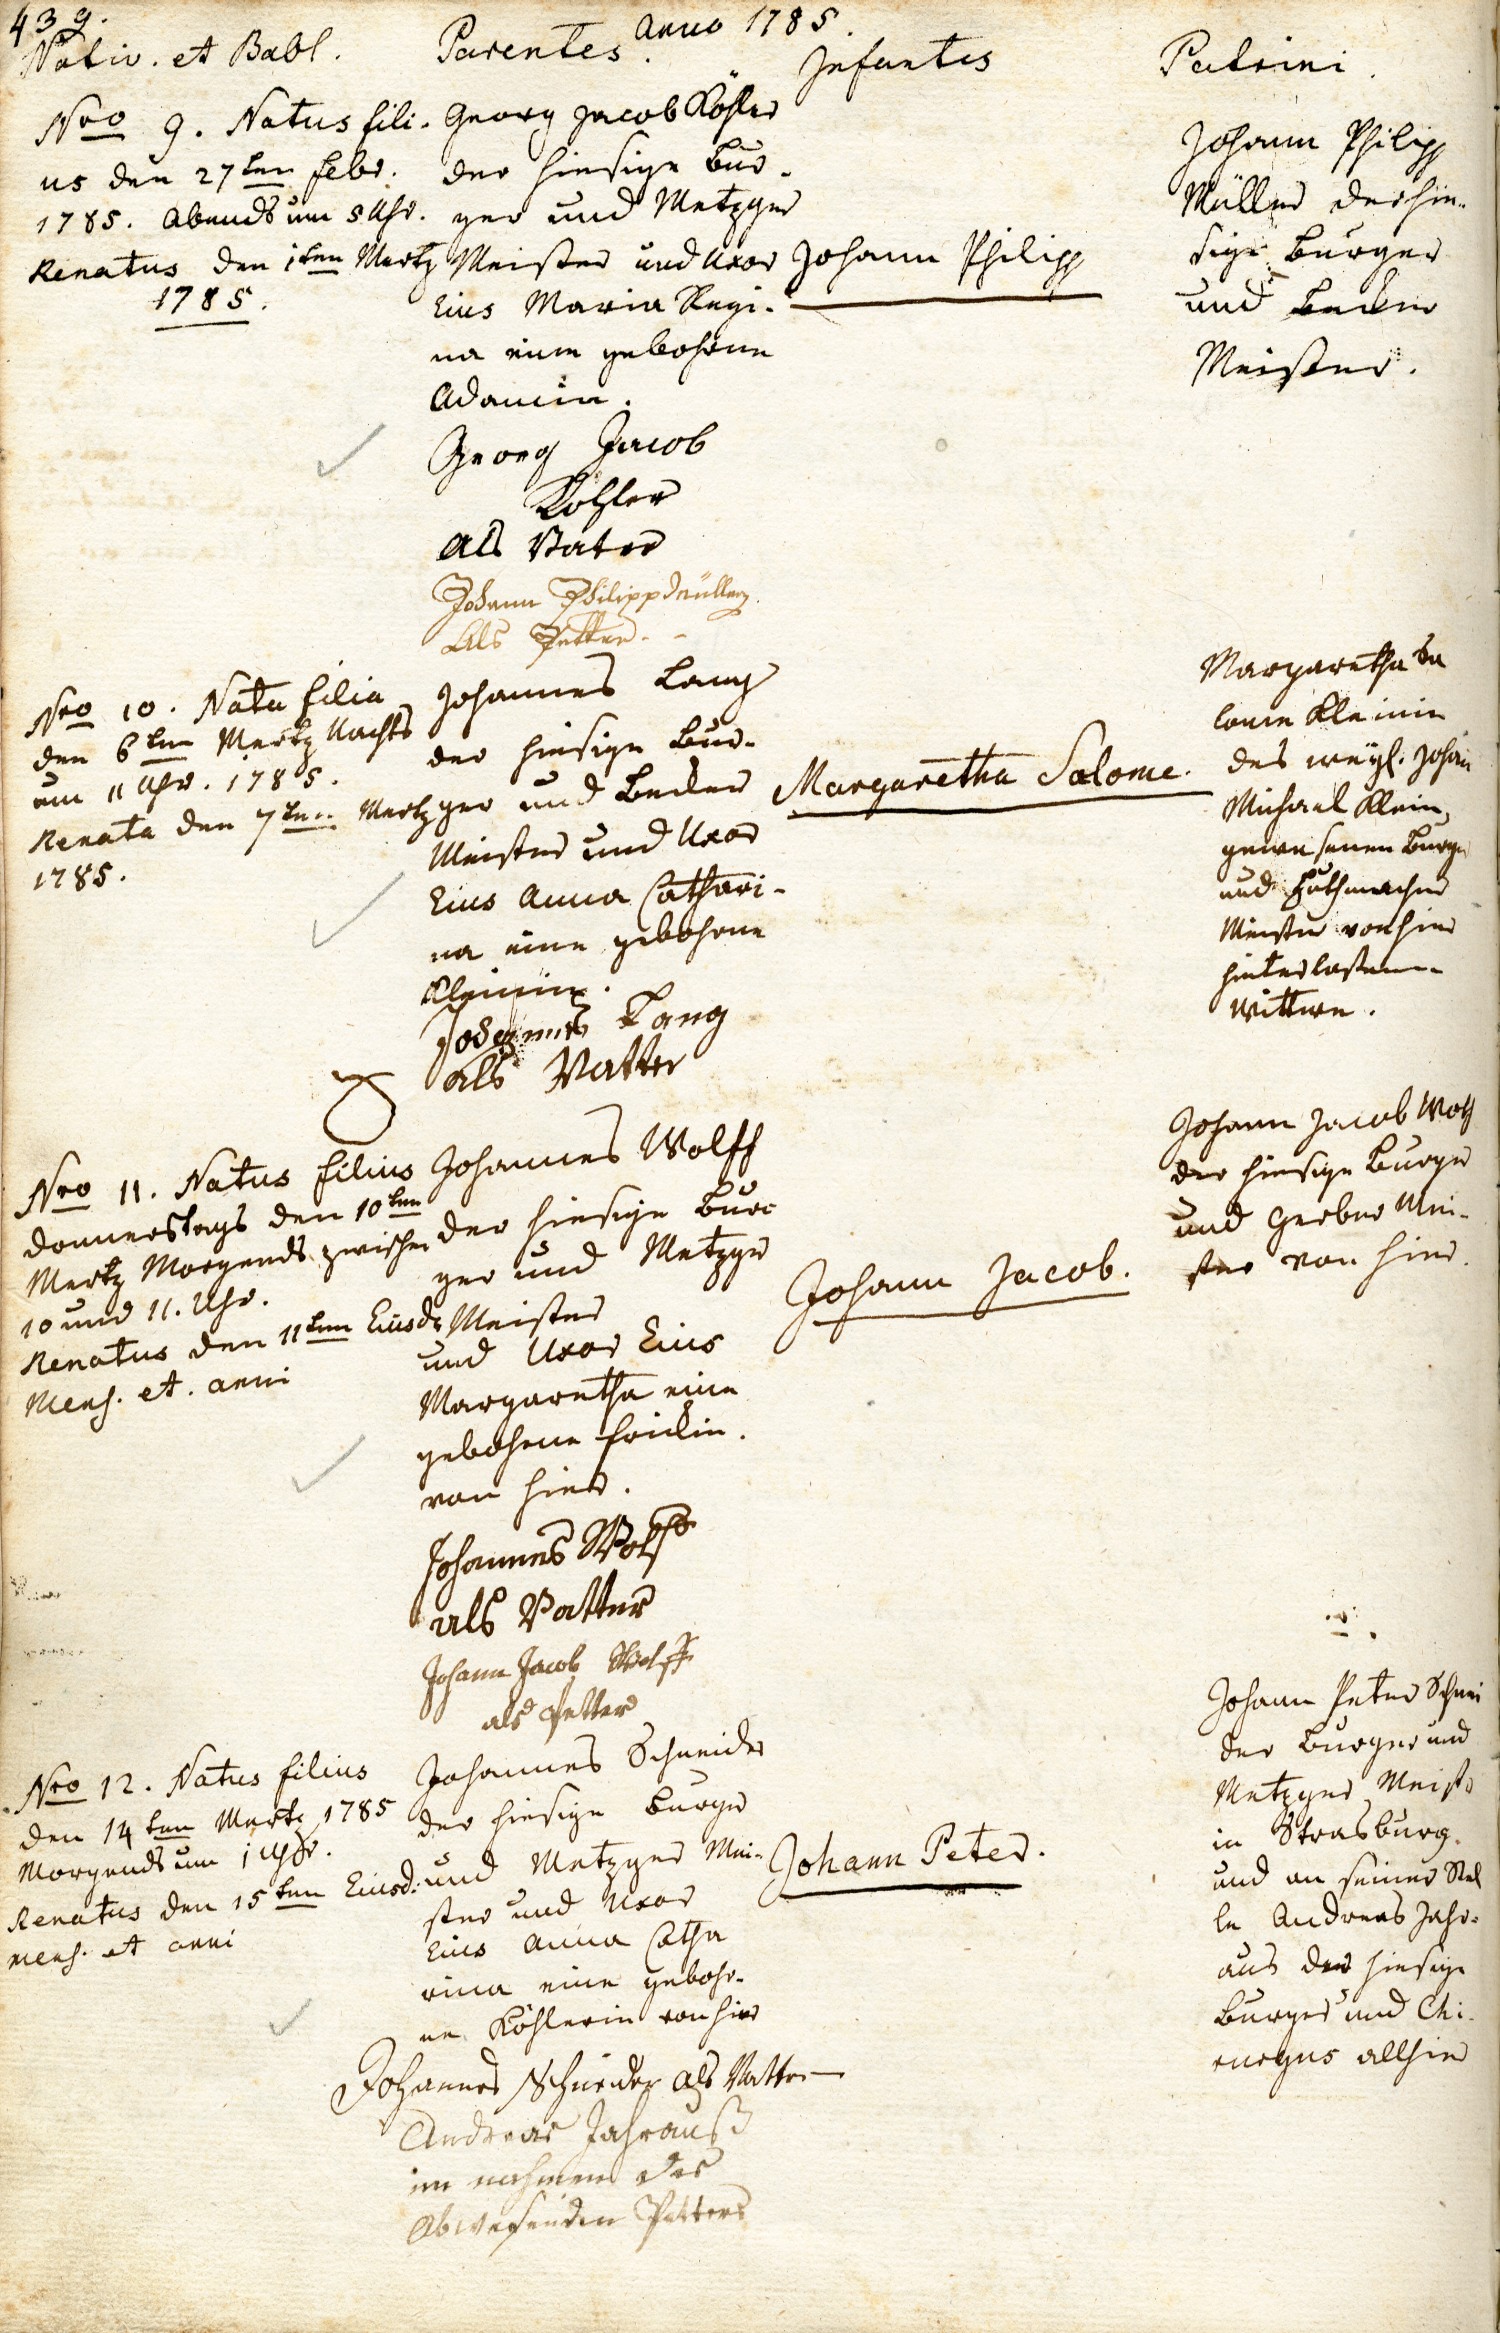 439.
Anno 1785.
Nativ. et Babt.
Nro 9. Natus fili-
us den 27ten Febr.
1785. Abends um 5 Uhr.
Renatus den 1ten Mertz
1785.
Parentes.
Georg Jacob Köhler
der hiesige Bur-
ger und Metzger
Meister und Uxor
Eius Maria Regi-
na eine gebohrne
Adamin.
Georg Jacob
Köhler
als Vater
Johann Philipp Müller
Als Petter.
Infantes
Johann Philipp
Patrini.
Johann Philipp
Müller der hie-
sige Burger
und Becker
Meister.
Nro 10. Nata filia
den 6ten Mertz Nachts
um 11 Uhr. 1785.
Renata den 7ten Mertz
1785.
Johannes Lang
der hiesige Bur-
ger und Becker
Meister und Uxor
Eius Anna Cathari-
na eine gebohrne
Kleinin.
Johannes Lang
als Vatter
Margaretha Salome.
Margaretha Sa
lome Kleinin
des weyl. Johan
Michael Klein,
gewesenen Burger
und Huthmacher
Meister von hier
hinterlassene
Wittwe.
Nro 11. Natus filius
Donnerstags den 10ten
Mertz Morgends zwischen
10 und 11. Uhr.
Renatus den 11ten Eiusd.
Mens. et. anni
Johannes Wolff
der hiesige Bur-
ger und Metzger
Meister
und Uxor Eius
Margaretha eine
gebohrne
von hier.
Johannes Wolff
als Vatter
Johann Jacob Wolff
als Petter
Johann Jacob.
Johann Jacob Wolff
der hiesige Burger
und Gerber Mei-
ster von hier.
Nro 12. Natus filius
den 14ten Mertz 1785
Morgends um 1 Uhr.
Renatus den 15ten Eiusd.
mens. et anni
Johannes Schneider
der hiesige Burger
und Metzger Mei-
ster und Uxor
Eius Anna Catha
rina eine gebohr-
ne Köhlerin von hier
Johannes Schneider als Vatter
Andreas Jahrauß
im nahmen des
Abwesenden Petters
Johann Peter.
Johann Peter Schnei
der Burger und
Metzger Meister
in Strasburg.
und an seiner Stel
le Andreas Jahr-
aus der hiesige
Burger und Chi-
rurgus allhier